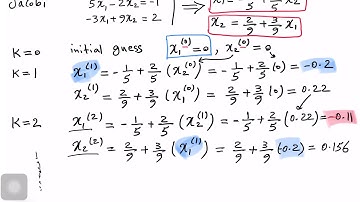 Jacobi 5x₁ - 2x₂ = -1
-3x₁ + 9x₂ = 2
x₂ = 2/9 + 3/9 x₁
K=0 initial guess x₁⁽⁰⁾=0, x₂⁽⁰⁾=0
K=1 x₁⁽¹⁾ = -1/5 + 2/5 (x₂⁽⁰⁾) = -1/5 + 2/5 (0) = -0.2
x₂⁽¹⁾ = 2/9 + 3/9 (x₁⁽⁰⁾) = 2/9 + 3/9 (0) = 0.22
K=2 x₁⁽²⁾ = -1/5 + 2/5 (x₂⁽¹⁾) = -1/5 + 2/5 (0.22) = -0.11
x₂⁽²⁾ = 2/9 + 3/9 (x₁⁽¹⁾) = 2/9 + 3/9 (-0.2) = 0.156